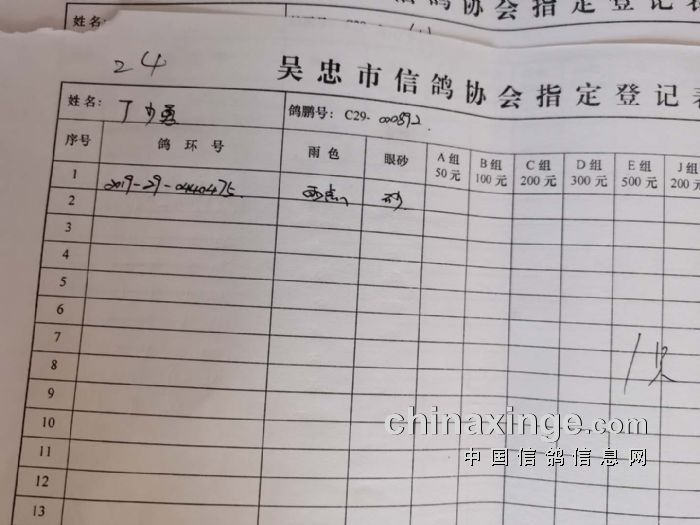 姓名:
24
吴忠市信鸽协会指定登记表
姓名: 丁少勇
鸽鹏号: C29-000592
序号 鸽环号 雨色 眼砂 A组 50元 B组 100元 C组 200元 D组 300元 E组 500元 J组 200元
1 2019-29-0440475 砂
2
3
4
5
6
7
8
9
10
11
12
13
chinaxinge.com
中国信鸽信息网